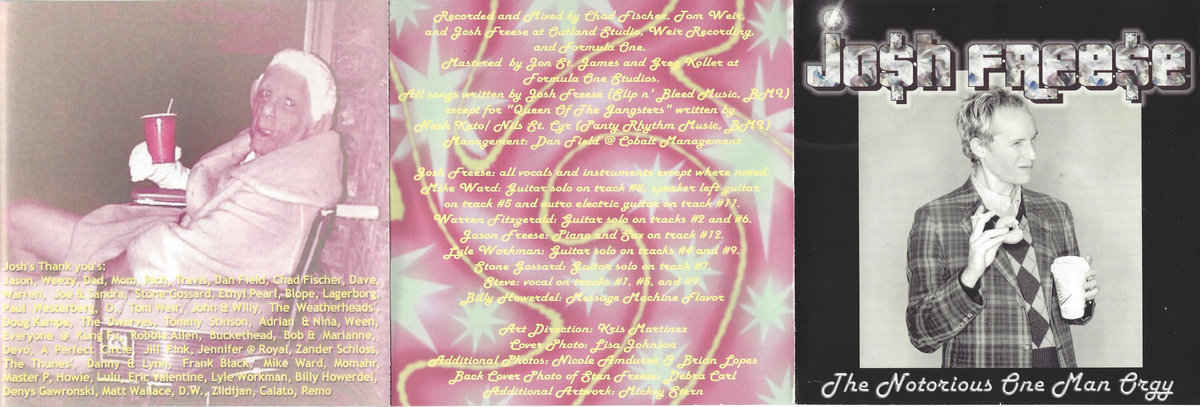 Josh's Thank you's:
Jason, Weezy, Dad, Mom, Rich, Travis, Dan Field, Chad Fischer, Dave,
Warren, Joe & sandra, Stone Gossard, Ethyl Pearl, Blope, Lagerborg,
Paul Westerberg, O., Tom Weir, John & Willy, The Weatherheads,
Doug Kampa, The Dwarves, Tommy Stinson, Adrian & Nina, Ween,
Everyone @ Kung Fu, Robbie Allen, Buckethead, Bob & Marianne,
Devo, A Perfect Circle, Jill Fink, Jennifer @ Royal, Zander Schloss,
The Thunes, Danny & Lynn, Frank Black, Mike Ward, Momahr,
Master P, Howie, Lulu, Eric Valentine, Lyle Workman, Billy Howerdel,
Denys Gawronski, Matt Wallace, D.W., Zildijan, Calato, Remo
Recorded and Mixed by Chad Fischer, Tom Weir,
and Josh Freese at Outland Studio, Weir Recording,
and Formula One.
Mastered by Jon St. James and Greg Koller at
Formula One Studios.
All songs written by Josh Freese (Slip n' Bleed Music, BMI)
except for "Queen Of The Gangsters" written by
Nash Kato/ Nils St. Cyr (Panty Rhythm Music, BMI)
Management: Dan Field @ Cobalt Management
Josh Freese: all vocals and instruments except where noted.
Mike Ward: Guitar solo on track #8, speaker left guitar
on track #5 and outro electric guitar on track #11.
Warren Fitzgerald: Guitar solo on tracks #2 and #6.
Jason Freese: Piano and Sax on track #12.
Lyle Workman: Guitar solo on tracks #4 and #9.
Stone Gossard: Guitar solo on track #7.
Steve: vocal on tracks #1, #5, and #9.
Billy Howerdel: Message Machine Flavor
Art Direction: Kris Martinez
Cover Photo: Lisa Johnson
Additional Photos: Nicole Amdurer & Brian Lopes
Back Cover Photo of Stan Freese: Debra Carl
Additional Artwork: Mickey Stern
Jo$h Free$e
The Notorious One Man Orgy